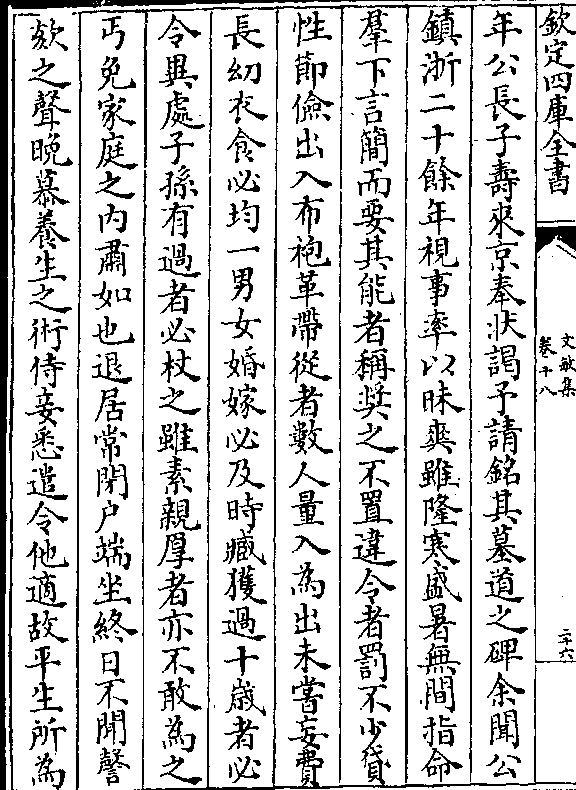 欽定四庫全書
文敏集
卷十八
二十六
年公長子壽來京奉狀謁予請銘其墓道之碑余聞公
鎮浙二十餘年視事率以昧爽雖隆寒盛暑無間指命
羣下言簡而要其能者稱奬之不置違令者罰不少貸
性節儉出入布袍革帶從者數人量入為出未嘗妄費
長幼衣食必均一男女婚嫁必及時臧獲過十歲者必
令異處子孫有過者必杖之雖素親厚者亦不敢為之
丐免家庭之内肅如也退居常閉户端坐終日不聞謦
欬之聲晚慕養生之術侍妾悉遣令他適故平生所為